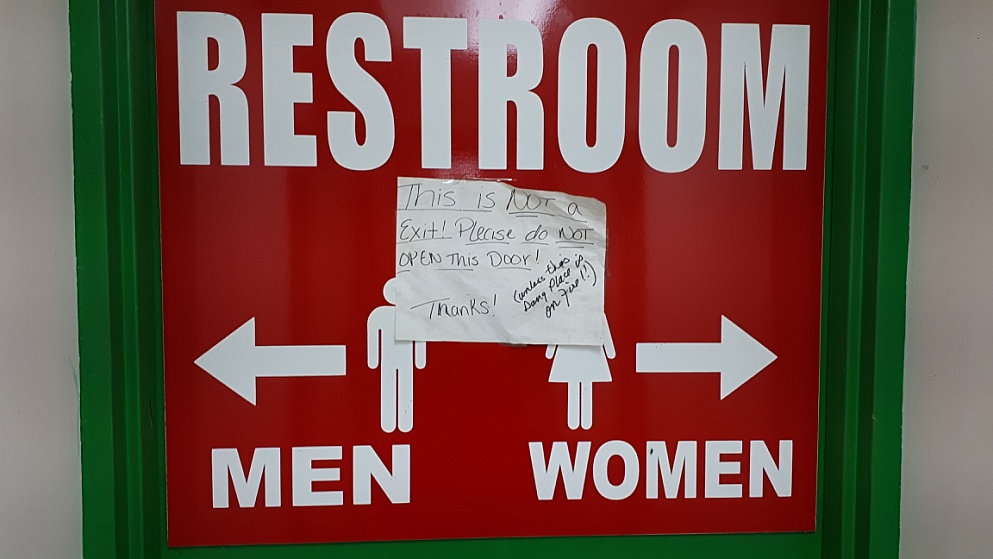 RESTROOM
This is NOT a
Exit! Please do NOT
OPEN This Door!
(unless this
Dang Place is
on Fire!!)
Thanks!
MEN
WOMEN